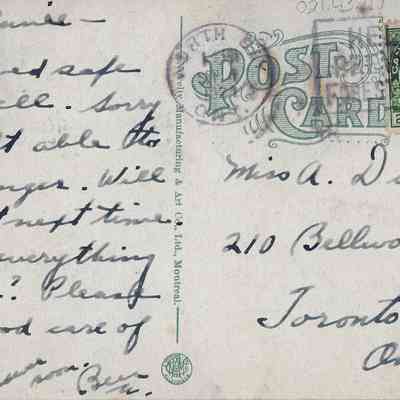 ed safe
ell. Sorry
t able to
nger. Will
next time.
everything
? Please
od care of
soon.
Novelty Manufacturing & Art Co., Ltd., Montreal.
POST
CARD
NORTH
ONT
Miss A. D
210 Bellwo
Toronto
On